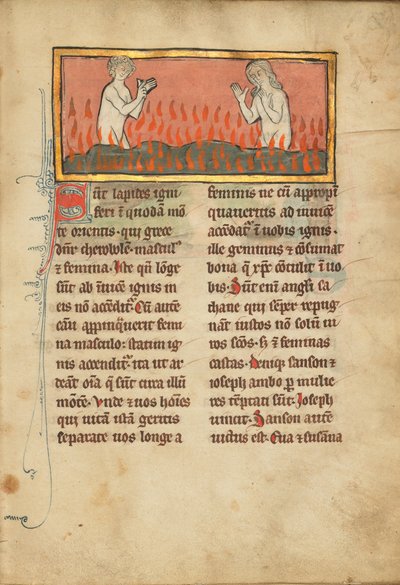 Sūt lapides igni
feri ī quodā mō
te orientis · qui grece
dn̄r chirobolī · mascul⁹
⁊ femina · Inde qn̄ lōge
sūt ab īuicē ignis in
eis nō accēdit̄ · Cū autē
casu appīquerit femi
na masculo : statim ig
nis accendit̄ · ita ut ar
deāt oīa q̄ sūt circa illū
mōtē · Unde ⁊ uos hōies
qui uitā istā geritis
separate uos longe a
feminis ne cū appropī
quaueritis ad īuicē
accēdat̄ ī uobis ignis ·
ille geminus ⁊ cōsumat
bona q̄ xp̄c cōtulit ī uo
bis · Sūt enī angli sa
thane qui sēper repug
nāt iustos nō solū ui
ros sc̄os · s̄ ⁊ feminas
castas · Deniq; sanson ⁊
ioseph ambo p̄ mulie
res tēptati sūt · Ioseph
uincit · Sanson autē
uictus est · Eua ⁊ susāna